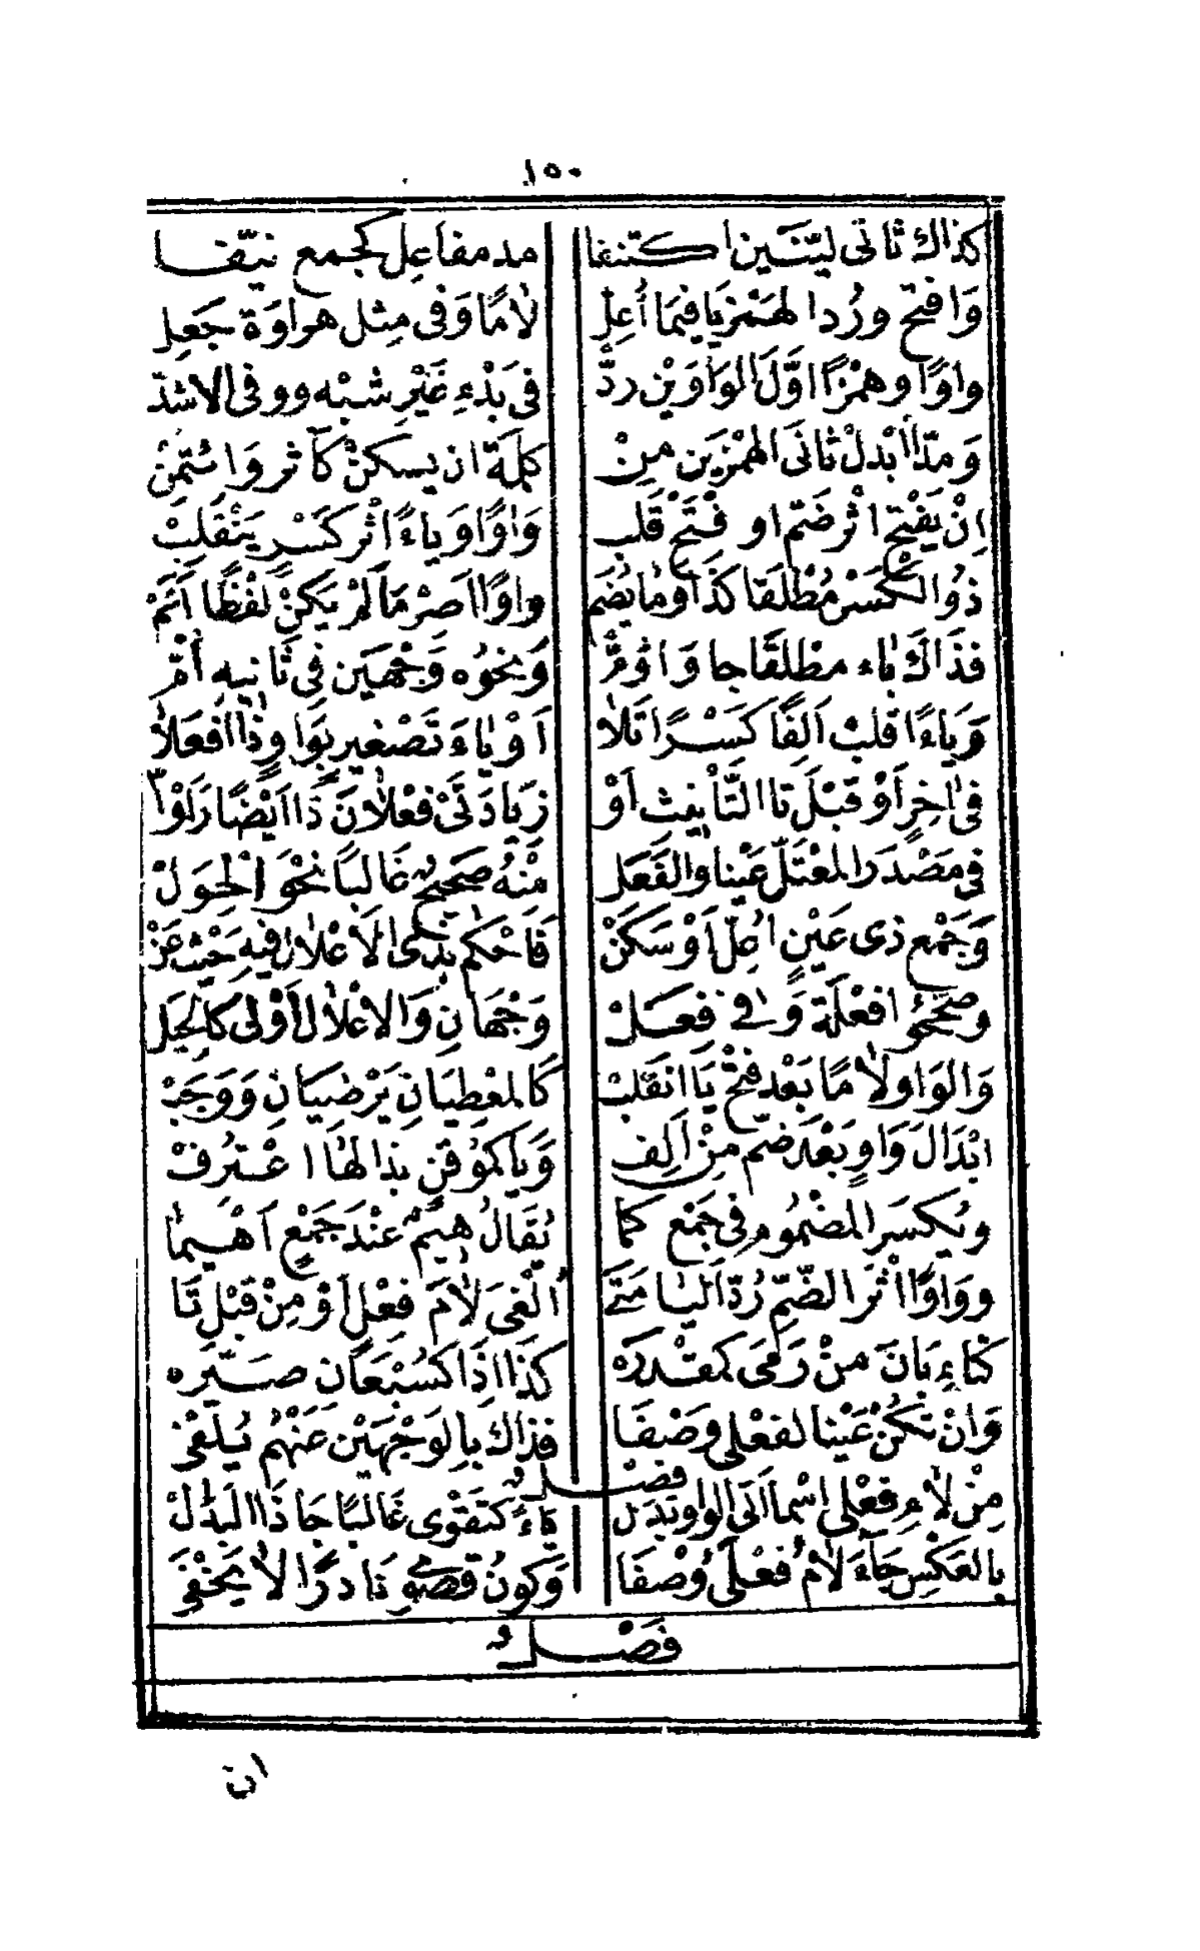 ١٥٠
كذاك ثانى ليّنَين اكتنفا مد مفاعِل كجمع نيّفا
وَافتح ورُدا لهَمْزيَا فيمَا أُعِل لامًا وَفى مِثل هراوَة جَعِل
واوًا وهمْزًا اوَّلَ الوَاوَيْن ردّ فى بَدْءِ غَيْرِ شبْه ووفى الاشدّ
وَمدّا أبْدلْ ثانىَ الهمْزَين مِنْ كلمَة ان يسكنْ كآثر وَائتمِنْ
اِنْ يُفْتح اثرضَمّ او فتْح قلب وَاوًا وَياءً اثْركَسْر يَنْقلِبْ
ذُوا لكَسْر مُطْلَقا كذَا وما يُضَم واوًا اصرْ مَا لمْ يَكنْ لفْظًا اَتَمّ
فذَاكَ ياء مطْلقًا جا وَاَؤمّ وَنحوُه وَجْهَين فى ثانيه أمّ
وَياءً اقلبْ اَلِفًا كَسْرًا تَلا اَوْ ياءَ تَصْغير بوَاوٍ ذَا افعَلا
فى اخِرٍ أَوْ قبْلَ تا التَّأنيث اَوْ زيَادَتَىْ فعْلانَ ذَا اَيْضًا رَاَوْا
فى مَصْدَر المعْتَلّ عَيْنا والفَعَل مِنْهُ صَحيحٌ غَالبًا نحْوَ الْحوَلْ
وَجَمْع ذى عَيْنٍ اُعِلّ اَوْ سَكنْ فَاحْكم بذى الاعْلال فيهِ حَيْث عَنْ
وصحّحُوا فعْلَة وَفى فِعَلْ وَجْهَانِ وَالاعْلالُ أوْلى كالحِيَل
وَالوَاو لامًا بَعْد فتْح يَا انقَلبْ كالمعْطِيَانِ يَرْضيَانِ وَوَجَبْ
ابْدَالَ وَاوٍ بَعْدَ ضمّ مِنْ اَلِف وَيَا كمُوقنٍ بذا لهَا اعْتُرِفْ
ويُكسَر المضْمُوم فى جَمْع كما يُقَالُ هيمٌ عنْدَ جَمْعِ اَهْيما
وَوَاوًا اثْرَ الضّمِّ رُدّ اليا مَتَى أُلْفىَ لامَ فعْلٍ أوْ مِنْ قبْل تَا
كتاءِ بَانَ منْ رَمَى كمقْدره كذَا اذَا كسَبُعَان صَيّره
وَانْ تكُنْ عَيْنا لفعْلى وَصْفَا فذاك بالوَجْهَيْن عَنْهُم يُلْفى
فصْلٌ
مِنْ لامِ فعْلى اسْما اَتَى الوَاو بَدَل يَاءٍ كتَقْوى غَالبًا جَا ذَا البَدَلْ
بالعَكْسِ جَاءَ لامُ فُعْلَى وَصْفَا وَكونُ قصْوى نادرًا لا يَخْفى
فَصْلٌ
ان